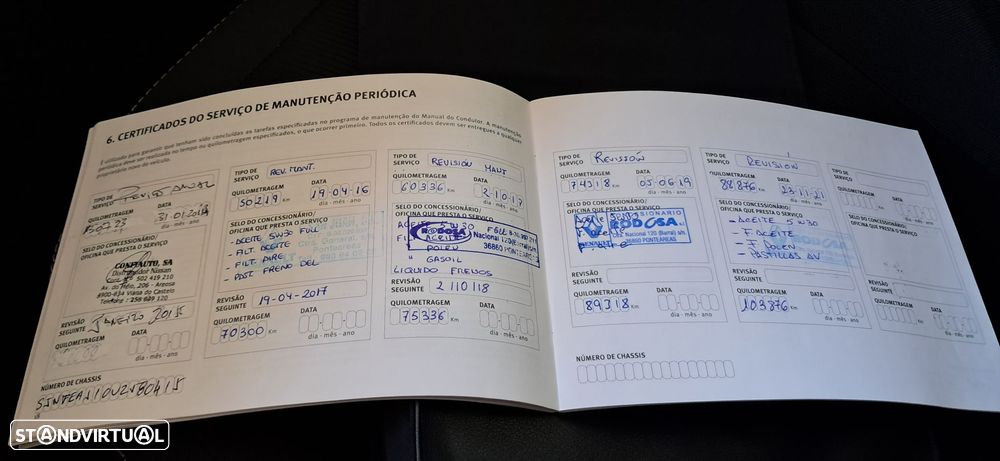 6. CERTIFICADOS DO SERVIÇO DE MANUTENÇÃO PERIÓDICA
É utilizado para garantir que tenham sido concluídas as tarefas especificadas no programa de manutenção do Manual do Condutor. A manutenção
periódica deve ser realizada no tempo ou quilometragem especificados, o que ocorrer primeiro. Todos os certificados devem ser entregues a qualquer
proprietário novo do veículo.
TIPO DE
SERVIÇO
QUILOMETRAGEM
DATA
31-01-
dia - mês - ano
SELO DO CONCESSIONÁRIO/
OFICINA QUE PRESTA O SERVIÇO
CONFIAUTO, SA
Distribuidor Nissan
Cont. 502 419 210
Av. do Meio, 206 - Areosa
4900- Viana do Castelo
Telefone:
REVISÃO
SEGUINTE
JANEIRO 2015
QUILOMETRAGEM
DATA
dia - mês - ano
NÚMERO DE CHASSIS
TIPO DE
SERVIÇO
REV. MANT.
QUILOMETRAGEM
DATA
50219 Km
19-04-16
dia - mês - ano
SELO DO CONCESSIONÁRIO/
OFICINA QUE PRESTA O SERVIÇO
- ACEITE 5W30 FULL
- FILT ACEITE
- FILT AIRE
- PAST FRENO DEL
REVISÃO
SEGUINTE
19-04-2017
QUILOMETRAGEM
DATA
70300 Km
dia - mês - ano
TIPO DE
SERVIÇO
REVISIÓN MANT
QUILOMETRAGEM
DATA
60336 Km
2-10-17
dia - mês - ano
SELO DO CONCESSIONÁRIO/
OFICINA QUE PRESTA O SERVIÇO
RODOSA
ACEITE
36860 PONTEAREAS
POLEN
" GASOIL
LIQUIDO FRENOS
REVISÃO
SEGUINTE
2 110 118
QUILOMETRAGEM
DATA
75336 Km
dia - mês - ano
TIPO DE
SERVIÇO
REVISIÓN
QUILOMETRAGEM
DATA
74318 Km
05-06-19
dia - mês - ano
SELO DO CONCESSIONÁRIO/
OFICINA QUE PRESTA O SERVIÇO
RODOSA
Nacional 120 (Barral) s/n
36860 PONTEAREAS
REVISÃO
SEGUINTE
QUILOMETRAGEM
DATA
89318 Km
dia - mês - ano
NÚMERO DE CHASSIS
TIPO DE
SERVIÇO
REVISION
QUILOMETRAGEM
DATA
88876 Km
23-11-21
dia - mês - ano
SELO DO CONCESSIONÁRIO/
OFICINA QUE PRESTA O SERVIÇO
- ACEITE 5W30
- F. ACEITE
- F. POLEN
- PASTILLAS AV
REVISÃO
SEGUINTE
QUILOMETRAGEM
DATA
103876 Km
dia - mês - ano
TIPO DE
SERVIÇO
QUILOMETRAGEM
DATA
Km
dia - mês - ano
SELO DO CONCESSIONÁRIO/
OFICINA QUE PRESTA O SERVIÇO
REVISÃO
SEGUINTE
QUILOMETRAGEM
DATA
Km
dia - mês - ano
STANDVIRTUAL